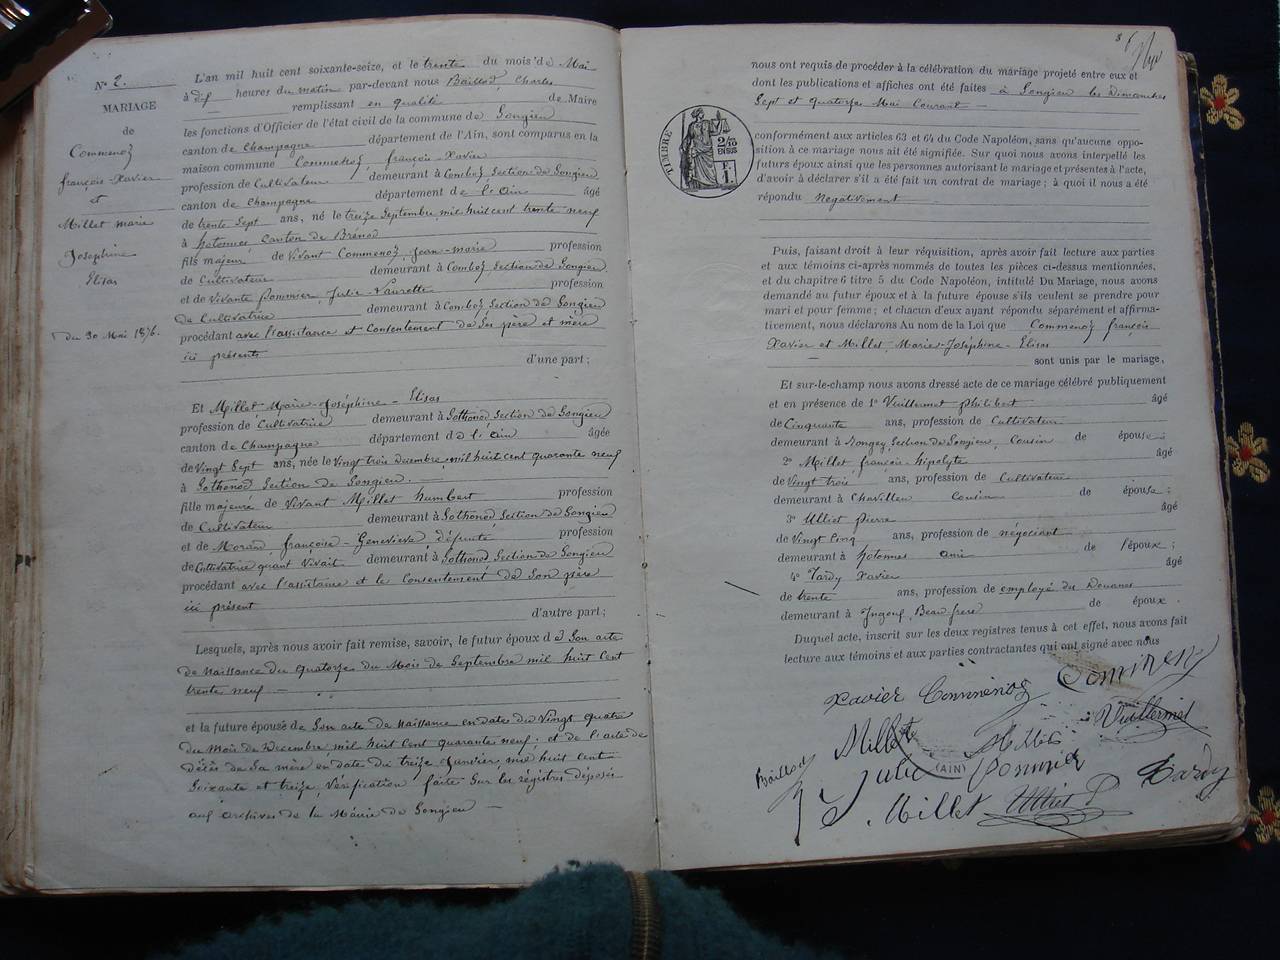 N° 2.
MARIAGE
de
Commenoz
françois Xavier
et
Millet marie
Joséphine
Elisas
du 30 Mai 1876.
L'an mil huit cent soixante-seize, et le trente du mois de Mai
à dix heures du matin par-devant nous Baillod, Charles
remplissant en qualité de Maire
les fonctions d'Officier de l'état civil de la commune de Songieu
canton de Champagne département de l'Ain, sont comparus en la
maison commune Commenoz françois-Xavier
profession de Cultivateur demeurant à Comboz Section de Songieu
canton de Champagne département de l'ain âgé
de trente Sept ans, né le treize Septembre mil huit cent trente neuf
à hotonnes Canton de Brénod
fils majeur de Vivant Commenoz Jean-marie profession
de Cultivateur demeurant à Comboz Section de Songieu
et de Vivante Pommier Julie Laurette profession
de Cultivatrice demeurant à Comboz Section de Songieu
procédant avec l'assistance et Consentement de Ses père et mère
ici présents d'une part;
Et Millet-Marie-Joséphine-Elisas
profession de Cultivatrice demeurant à Sothonod Section de Songieu
canton de Champagne département de l'ain âgée
de Vingt Sept ans, née le Vingt trois Decembre mil huit cent quarante neuf
à Sothonod Section de Songieu.
fille majeure de Vivant Millet humbert profession
de Cultivateur demeurant à Sothonod Section de Songieu
et de Morand françoise-Geneviève défunte profession
de Cultivatrice quant Vivait demeurant à Sothonod Section de Songieu
procédant avec l'assistance et le Consentement de Son père
ici présent d'autre part;
Lesquels, après nous avoir fait remise, savoir, le futur époux de Son acte
de Naissance du quatorze du Mois de Septembre mil huit Cent
trente neuf
et la future épouse de Son acte de naissance en date du Vingt quatre
du Mois de Decembre mil huit cent quarante neuf; et de l'acte de
décès de Sa mère en date du treize Janvier mil huit cent
Soixante et treize Vérification faite Sur les régistres deposés
aux archives de la Mairie de Songieu
nous ont requis de procéder à la célébration du mariage projeté entre eux et
dont les publications et affiches ont été faites à Songieu les Dimanches
Sept et quatorze Mai Courant
TIMBRE
2/10
EN SUS
1 F.
conformément aux articles 63 et 64 du Code Napoléon, sans qu'aucune oppo-
sition à ce mariage nous ait été signifiée. Sur quoi nous avons interpellé les
futurs époux ainsi que les personnes autorisant le mariage et présentes à l'acte,
d'avoir à déclarer s'il a été fait un contrat de mariage ; à quoi il nous a été
répondu Negativement
Puis, faisant droit à leur réquisition, après avoir fait lecture aux parties
et aux témoins ci-après nommés de toutes les pièces ci-dessus mentionnées,
et du chapitre 6 titre 5 du Code Napoléon, intitulé Du Mariage, nous avons
demandé au futur époux et à la future épouse s'ils veulent se prendre pour
mari et pour femme ; et chacun d'eux ayant répondu séparément et affirma-
tivement, nous déclarons Au nom de la Loi que Commenoz françois
Xavier et Millet Marie-Joséphine-Elisas
sont unis par le mariage,
Et sur-le-champ nous avons dressé acte de ce mariage célébré publiquement
et en présence de 1° Vuillermet philibert âgé
de Cinquante ans, profession de Cultivateur
demeurant à Section de Songieu, Cousin de épouse;
2° Millet françois-hipolyte âgé
de Vingt trois ans, profession de Cultivateur
demeurant à Chavillieu Cousin de épouse;
3° Ulliet Pierre âgé
de Vingt Cinq ans, profession de négociant
demeurant à hotonnes ami de l'époux;
4° Tardy Xavier âgé
de trente ans, profession de employé des Douanes
demeurant à Beau-frere de époux.
Duquel acte, inscrit sur les deux registres tenus à cet effet, nous avons fait
lecture aux témoins et aux parties contractantes qui ont signé avec nous
Xavier Comménoz
Vuillermet
Millet Millet
Baillod Julie Pommier Tardy
J. Millet Ulliet P
(AIN)